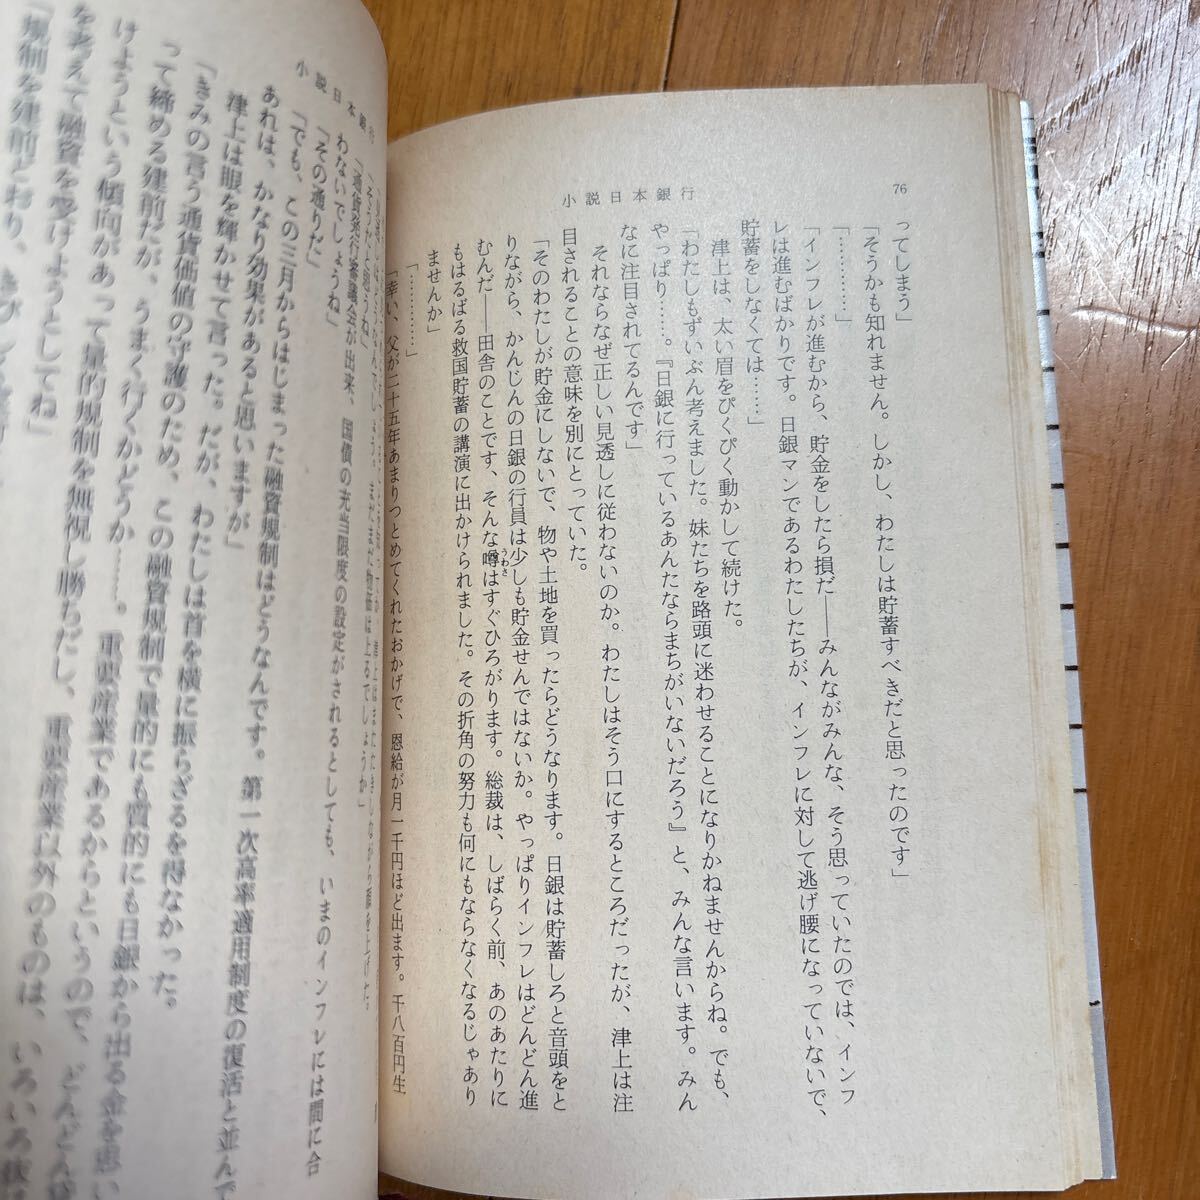 76
小説日本銀行
ってしまう」
「そうかも知れません。しかし、わたしは貯蓄すべきだと思ったのです」
「…………」
「インフレが進むから、貯金をしたら損だ――みんながみんな、そう思っていたのでは、インフ
レは進むばかりです。日銀マンであるわたしたちが、インフレに対して逃げ腰になっていないで、
貯蓄をしなくては……」
津上は、太い眉をぴくぴく動かして続けた。
「わたしもずいぶん考えました。妹たちを路頭に迷わせることになりかねませんからね。でも、
やっぱり……。『日銀に行っているあんたならまちがいないだろう』と、みんな言います。みん
なに注目されてるんです」
それならなぜ正しい見透しに従わないのか。わたしはそう口にするところだったが、津上は注
目されることの意味を別にとっていた。
「そのわたしが貯金にしないで、物や土地を買ったらどうなります。日銀は貯蓄しろと音頭をと
りながら、かんじんの日銀の行員は少しも貯金せんではないか。やっぱりインフレはどんどん進
むんだ――田舎のことです、そんな噂うわさはすぐひろがります。総裁は、しばらく前、あのあたりに
もはるばる救国貯蓄の講演に出かけられました。その折角の努力も何にもならなくなるじゃあり
ませんか」
「…………」
「幸い、父が二十五年あまりつとめてくれたおかげで、恩給が月一千円ほど出ます。千八百円生
小説日本銀行
「そうだと思うね」
「通貨発行審議会が出来、国債の充当限度の設定がされるとしても、いまのインフレには間に合
わないでしょうね」
「その通りだ」
「でも、この三月からはじまった融資規制はどうなんです。第一次高率適用制度の復活と並んで
あれは、かなり効果があると思いますが」
津上は眼を輝かせて言った。だが、わたしは首を横に振らざるを得なかった。
「きみの言う通貨価値の守護のため、この融資規制で量的にも質的にも日銀から出る金を思い
って締める建前だが、うまく行くかどうか……。重要産業であるからというので、どんどん
けようという傾向があって量的規制を無視し勝ちだし、重要産業以外のものは、いろいろ抜
を考えて融資を受けようとしてね」
「規制を建前どおり、きびしく